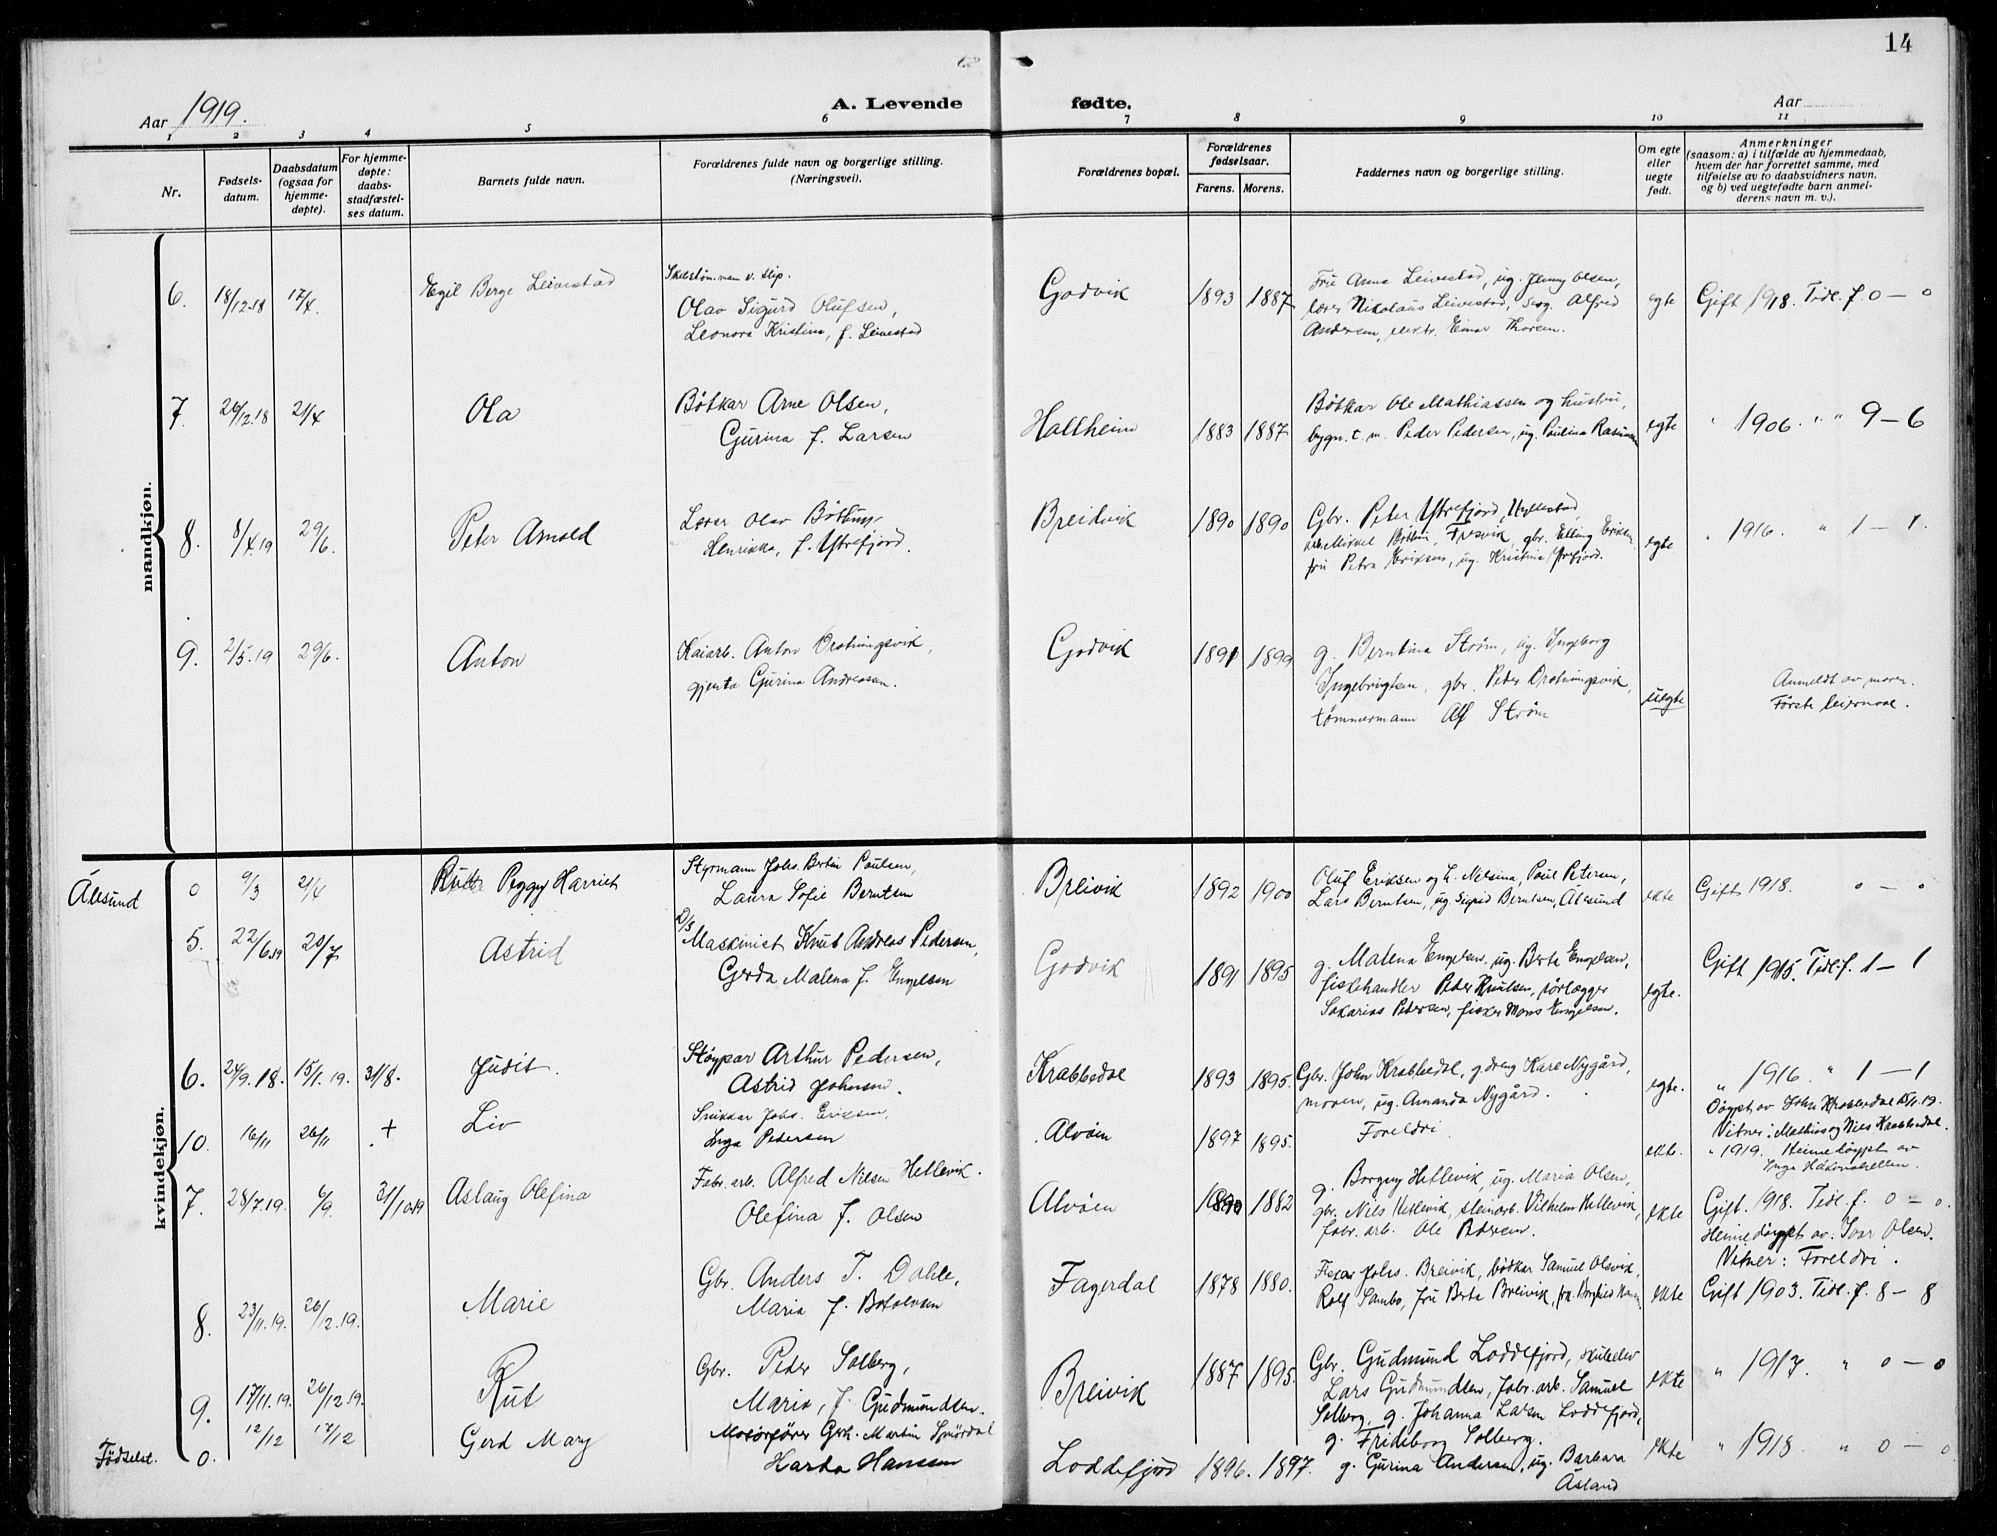 14
Aar 1919.
A. Levende fødte.
Aar
1 2 3 4 5 6 7 8 9 10 11
Nr.
Fødsels-
datum.
Daabsdatum
(ogsaa for
hjemme-
døpte).
For hjemme-
døpte:
daabs-
stadfæstel-
ses datum.
Barnets fulde navn.
Forældrenes fulde navn og borgerlige stilling.
(Næringsvei).
Forældrenes bopæl.
Forældrenes
fødselsaar.
Farens. Morens.
Faddernes navn og borgerlige stilling.
Om egte
eller
uegte
født.
Anmerkninger
(saasom: a) i tilfælde av hjemmedaab,
hvem der har forrettet samme, med
tilføielse av to daabsvidners navn,
og b) ved uegtefødte barn anmel-
derens navn m. v.).
mandkjøn.
6. 18/12.18 17/4. Egil Berge Leivestad
Olav Sigurd Olufsen,
Leonora Kristina, f. Leivestad
Godvik 1893 1887
Fru Anna Leivestad, ug. Jenny Olsen,
lærer Nikolaus Leivestad, Alfred
Andersen, elektr. Einar Thorsen.
egte Gift 1918. Tidl. f. 0 — 0
7. 26/12.18 21/4 Ola
Bøtkar Arne Olsen,
Gjurina f. Larsen
Hallheim 1883 1887
Bøtkar Ole Mathiassen og hustru,
bygn. t. m. Peder Pedersen, ug. Paulina Rasmussen
egte " 1906. " " 9 — 6
8. 8/4.19 29/6. Peter Arnold
Lærer Olav Bøtun,
Henrikka, f. Ytrefjord.
Breidvik 1890 1890
Gbr. Peter Ytrefjord, Hyllestad,
Mikkel Bøtun, Fresvik, gbr. Elling Eriksen
fru Petra Eriksen, ug. Kristina Ytrefjord.
egte " 1916. " 1 — 1.
9. 2/5.19 29/6. Anton
Kaiarb. Anton Drotningsvik,
gjenta Gjurina Andreassen.
Godvik 1891 1899
g. Berntina Strøm, ug. Ingeborg
Ingebrigtsen, gbr. Peder Drotningsvik,
tømmermann Alf Strøm
uegte
Anmeldt av moren.
Første leiermaal.
kvindekjøn.
Ålesund 0 9/3 21/4 Rutt Peggy Harriet
Styrmann Johs. Bertin Paulsen,
Laura Sofie Berntsen
Breivik 1892 1900
Oluf Eriksen og h. Nelsina, Paul Petersen,
Lars Berntsen, ug. Sigrid Berntsen, Ålesund
ekte Gift 1918. 0 — 0
5. 22/6.19 20/7 Astrid
D/S
Maskinist Knut Andreas Pedersen,
Gerda Malena f. Engelsen
Godvik 1891 1895
g. Malena Engelsen, ug. Berta Engelsen,
fiskehandler Peder Knutsen, rørlægger
Sakarias Petersen, fisker Mons Engelsen.
egte. Gift 1915. Tidl. f. 1 — 1
6. 24/9.18. 15/1.19. 31/8. Judit.
Støypar Arthur Pedersen,
Astrid Johnsen.
Krabbedal 1893 1895.
Gbr. John Krabbedal, g.dreng Kare Nygård,
moren, ug. Amanda Nygård.
egte. " 1916 " 1 — 1
Døypt av John Krabbedal 15/1.19.
Vitner: Mathias og Nils Krabbedal.
10. 16/11 26/11 + Liv
Snikkar Johs. Eriksen,
Inga Pedersen
Alvøen 1897 1895.
Foreldri.
ekte. " 1919. Heimedøypt av
Inga Håkonshellen.
7. 28/7.19. 6/9. 31/10.19 Aslaug Olefina
Fabr. arb. Alfred Nilsen Hetlevik.
Olefina f. Olsen
Alvøen 1890 1882
g. Borgny Hetlevik, ug. Maria Olsen,
gbr. Nils Hetlevik, steinarb. Vilhelm Hetlevik,
fabr. arb. Ole Pedersen.
ekte Gift. 1918. Tidl. f. 0 — 0.
Heimedøypt av: Ivar Olsen.
Vitner: Foreldri.
8. 23/11.19. 26/12.19. Marie
Gbr. Anders T. Dahle,
Maria f. Botolvsen
Fagerdal 1878 1880.
Fisker Johs. Breivik, bøtkar Samuel Olsvik,
Rolf Sambo, fru Berta Breivik, frk. Borghild Hansen.
ekte Gift 1903. Tidl. f. 8 — 8
9. 17/11.19. 26/12.19. Rut
Gbr. Peder Solberg,
Maria, f. Gudmundsen.
Breivik 1887 1895.
Gbr. Gudmund Loddefjord, skuleelev
Lars Gudmundsen, fabr. arb. Samuel
Solberg, g. Johanna Larsen Loddefjord,
g. Frideborg Solberg.
ekte " 1917. " 0 — 0
Födselsst. 0. 12/12 17/12 Gerd Mary
Motorfører Gerh. Martin
Harda Hanssen
Loddefjord 1896. 1897.
g. Gurina Andersen, ug. Barbara
Åsland
ekte " 1918. " 0 — 0